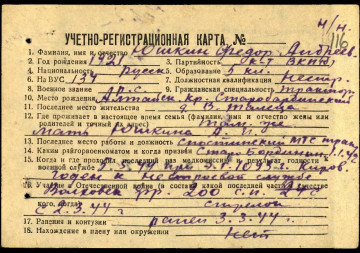 н/н.
116
УЧЕТНО-РЕГИСТРАЦИОННАЯ КАРТА, №
1. Фамилия, имя и отчество Юшкин Федор Андреев.
2. Год рождения 1921 3. Партийность к-т ВКП(б)
4. Национальность русск. 5. Образование 5 кл.
6. На ВУС 134 7. Должностная квалификация
8. Военное звание кр-с. 9. Гражданская специальность тракто
10. Место рождения Алтайск. кр. Старобардинский
11. Последнее место жительства д. В.
12. Где проживает в настоящее время семья (фамилия, имя и отчество жены или родителей и точный их адрес) Там же
Мать Юшкина А. И.
13. Последнее место работы и должность МТС
14. Каким райгорвоенкоматом и когда призван Старо Бардинск
15. Когда и где проходил последний раз медкомиссию и результат годности к
военной службе 9.5.44 при
Годен к нестроевой службе
16. Участие в Отечественной войне (в составе какой последней части и в качестве
Волхов. фр. 200 с. п.
кого, когда) с 2.3.44 г. стрелок
17. Ранения и контузии ранен 3.3.44 г.
18. Нахождение в плену или окружении нет